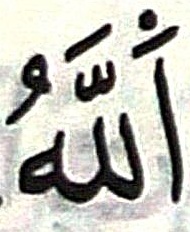 اَللَّهُ